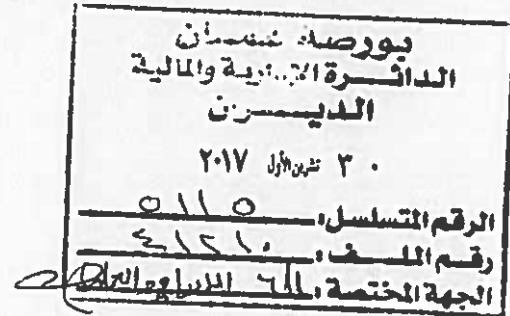 بورصة عمان
الدائرة الإدارية والمالية
الديوان
٣٠ تشرين الأول ٢٠١٧
الرقم المتسلسل: ٥١١٥
رقم الملف: ٤١٢١٠
الجهة المختصة: